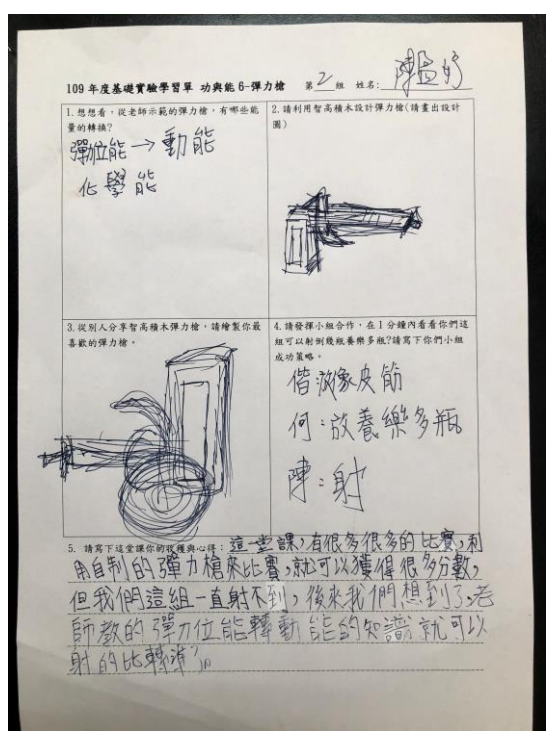 109 年度基礎實驗學習單 功與能 6-彈力槍 第2組 姓名:陳
1.想想看,從老師示範的彈力槍,有哪些能
量的轉換?
彈力位能→動能
化學能
2.請利用智高積木設計彈力槍(請畫出設計
圖)
3.從別人分享智高積木彈力槍,請繪製你最
喜歡的彈力槍。
4.請發揮小組合作,在1分鐘內看看你們這
組可以射倒幾瓶養樂多瓶?請寫下你們小組
成功策略。
橡皮筋
何:放養樂多瓶
陳:射
5. 請寫下這堂課你的收穫與心得:這一堂課,有很多很多的比賽,利
用自制的彈力槍來比賽,就可以獲得很多分數,
但我們這組一直射不到,後來我們想到了,老
師教的彈力位能轉動能的知識就可以
射的比較準